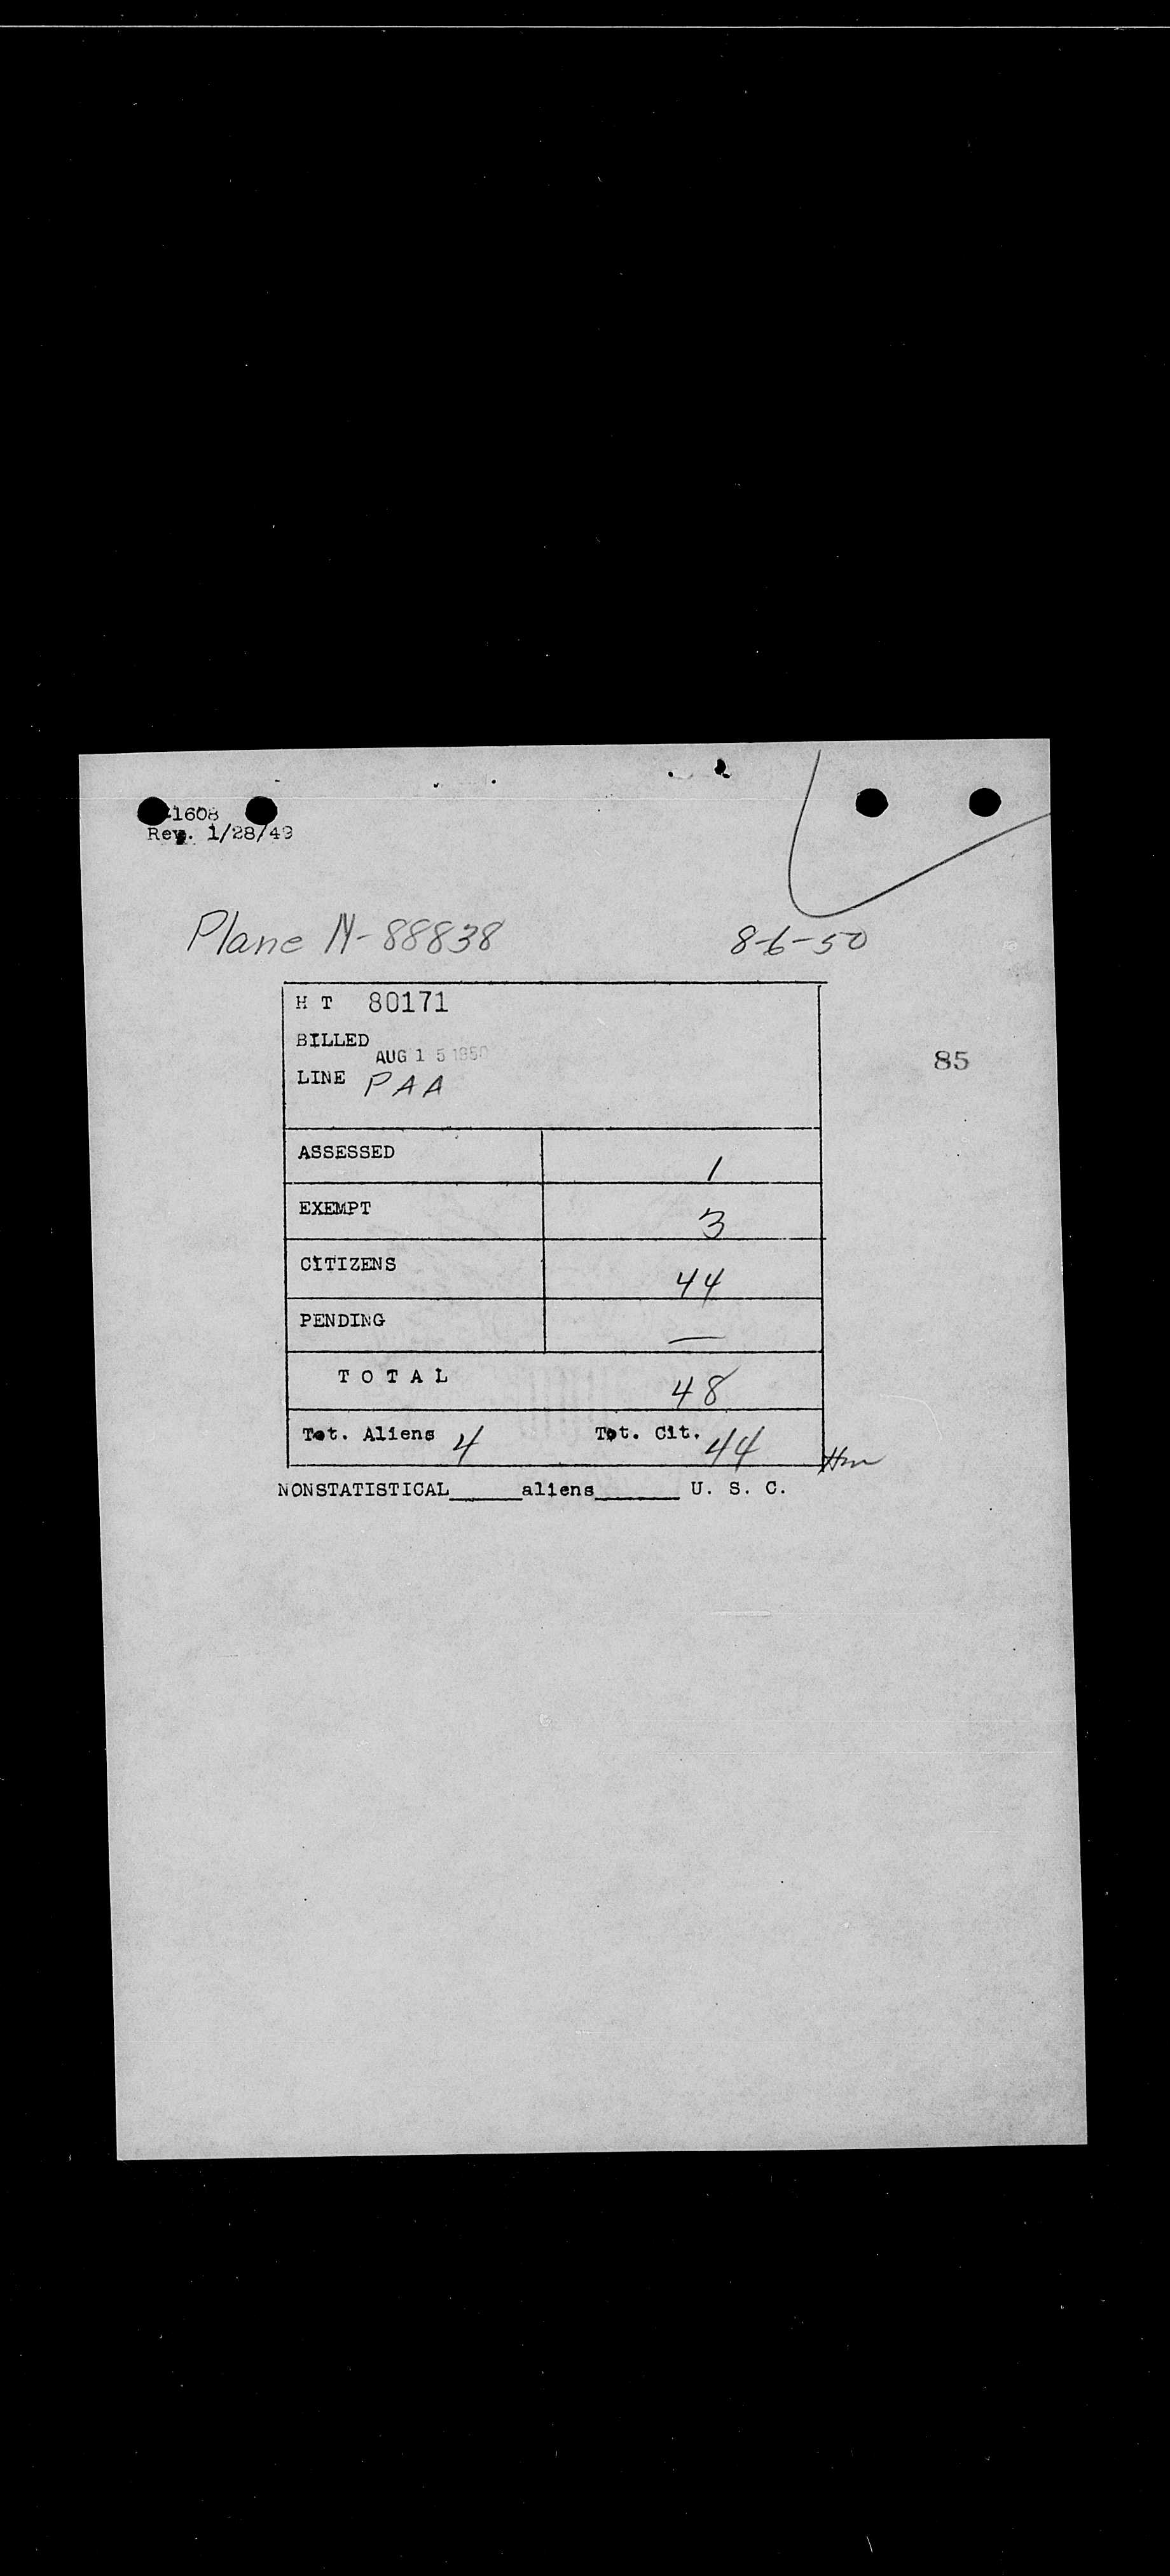 1608
Rev. 1/28/49
Plane N-88838 8-6-50
H T 80171
BILLED
AUG 15 1950
85
LINE PAA
ASSESSED 1
EXEMPT 3
CITIZENS 44
PENDING —
TOTAL 48
Tot. Aliens 4 Tot. Cit. 44
NONSTATISTICAL______aliens_______ U. S. C.